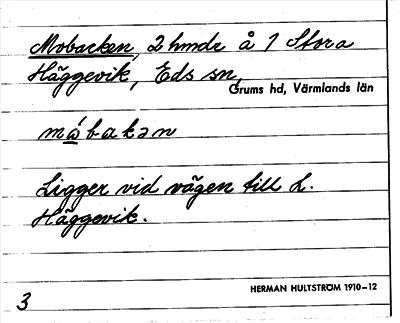 Mobacken, 2 hmdr å 1 Stora
Häggevik, Eds sn,
Grums hd, Värmlands län
má̱bakən
Ligger vid vägen till L.
Häggevik.
HERMAN HULTSTRÖM 1910-12
3